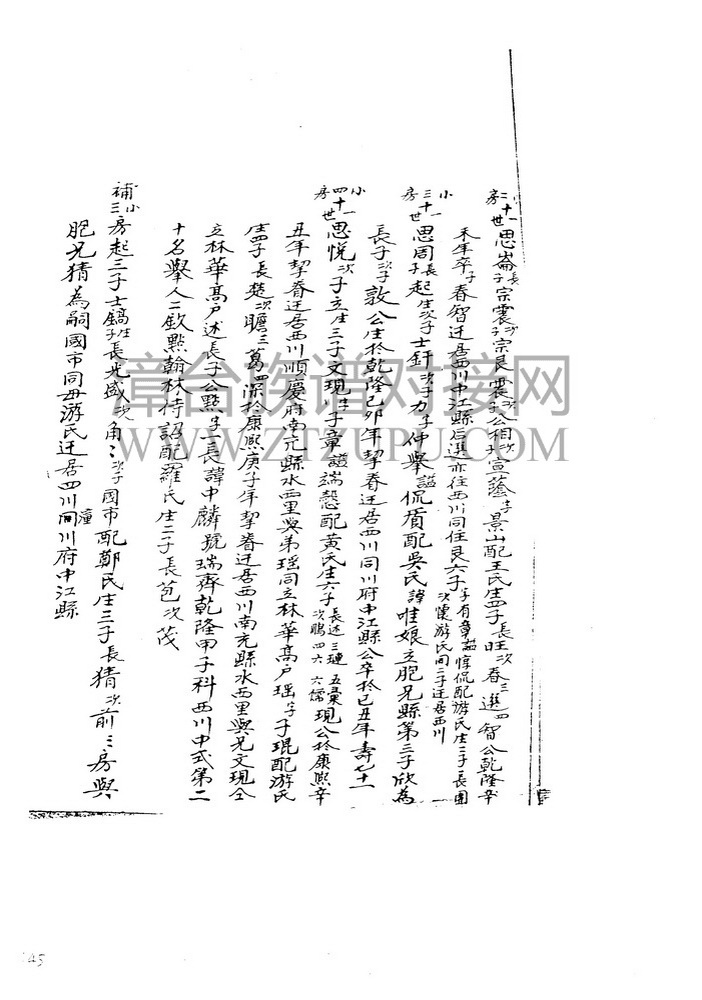 二十一世 小二房 思崙長子宗震次子宗艮震子公相次宣蔭子景山配王氏生四子長旺次春三選四智公乾隆辛
未年卒子春智迁居西川中江縣后選亦往西川同住艮六子子有章謚惇侃配游氏生二子長團
次懷游氏同二子迁居西川
三十一世 小房 思同長子起生次子士釬次子力子仲舉謚侃盾配吳氏諱唯娘立胞兄縣第三子欣為
長子次子敦公生於乾隆己卯年挈眷迁居西川同川府中江縣公卒於己丑年壽七十一
四十一世 小房 思悅次子立生三子文現子章謚端慤配黃氏生六子長述三璉五彙次鵬四六六儒現公於康熙辛
丑年挈眷迁居西川順慶府南充縣水西里與弟瑶同立林華髙户瑶子子琨配游氏
生四子長楚次瞻三萬四深於康熙庚子年挈眷迁居西川南充縣水西里與兄文現仝
立林華髙户述長子公點子一長諱中麟號瑞齊乾隆甲子科西川中式第二
十名舉人二欽點翰林侍詔配羅氏生二子長苞次茂
補小三房起三子士鎬生子長光盛次角角次子國市配鄭氏生三子長猜次前三房與
胞兄猜為嗣國市同母游氏迁居四川潼川府中江縣
章台族谱对接网
WWW.ZTZUPU.COM
45